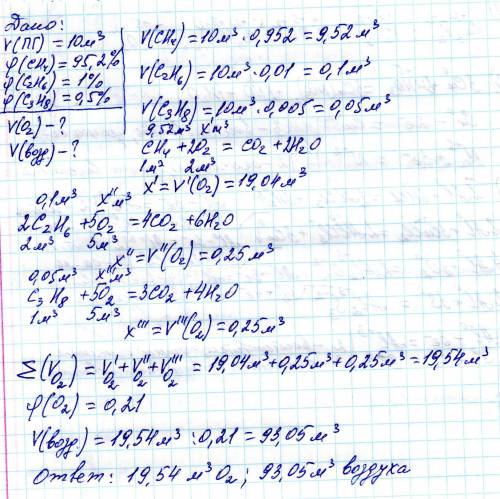 Дано:
V(ПГ) = 10м³
φ(CH₄) = 95,2%
φ(C₂H₆) = 1%
φ(C₃H₈) = 0,5%
V(O₂) - ?
V(возд) - ?
V(CH₄) = 10м³ · 0,952 = 9,52м³
V(C₂H₆) = 10м³ · 0,01 = 0,1м³
V(C₃H₈) = 10м³ · 0,005 = 0,05м³
9,52м³ x'м³
CH₄ + 2O₂ = CO₂ + 2H₂O
1м³ 2м³
x' = V'(O₂) = 19,04м³
0,1м³ x''м³
2C₂H₆ + 5O₂ = 4CO₂ + 6H₂O
2м³ 5м³
x'' = V''(O₂) = 0,25м³
0,05м³ x'''м³
C₃H₈ + 5O₂ = 3CO₂ + 4H₂O
1м³ 5м³
x''' = V'''(O₂) = 0,25м³
Σ(V O₂) = V'O₂ + V''O₂ + V'''O₂ = 19,04м³ + 0,25м³ + 0,25м³ = 19,54м³
φ(O₂) = 0,21
V(возд) = 19,54м³ : 0,21 = 93,05м³
Ответ: 19,54 м³ O₂; 93,05м³ воздуха